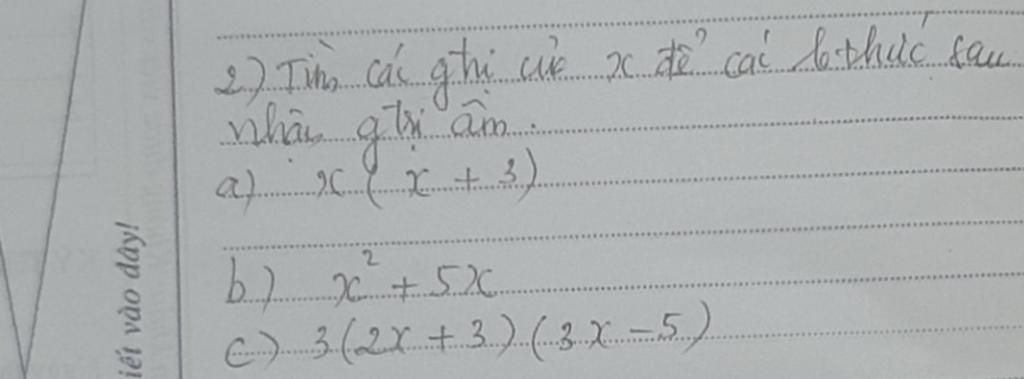 2) Tìm các g thị của x để các b.thức sau
nhận g trị âm.
a) x ( x + 3)
b) x² + 5x
iết vào đây!
c) 3(2x + 3)(3x - 5)